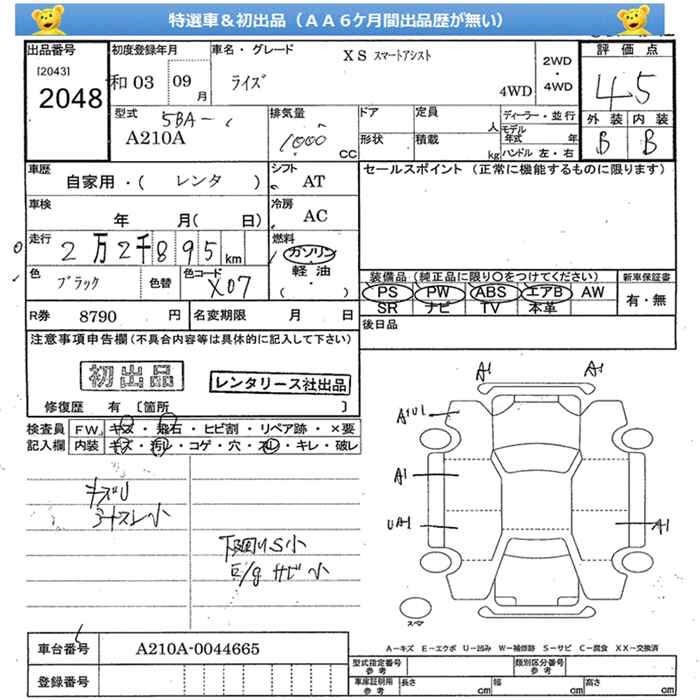 特選車＆初出品（ＡＡ６ケ月間出品歴が無い）
出品番号
[2043]
2048
初度登録年月
和 03 09 月
車名・グレード
ＸＳ スマートアシスト
ライズ
4WD
2WD
・
4WD
評価点
4 5
外装 内装
B B
型式
5BA-
A210A
排気量
1000
CC
ドア
形状
定員
人
積載
kg
ディーラー・並行
モデル年式 年
ハンドル 左・右
車歴
自家用・( レンタ )
シフト
AT
セールスポイント（正常に機能するものに限ります）
車検
年 月( 日)
冷房
AC
走行
2万2千895 km
燃料
ガソリン
軽・油
( ・ )
色
ブラック
色替
色コード
X07
装備品（純正品に限り○をつけてください）
PS PW ABS エアB AW
SR ナビ TV 本革
新車保証書
有・無
R券 8790 円
名変期限 月 日
後日品
注意事項申告欄(不具合内容等は具体的に記入して下さい)
初出品
レンタリース社出品
修復歴 有 [箇所 ]
検査員記入欄
FW キズ・飛石・ヒビ割・リペア跡・×要
内装 キズ・汚レ・コゲ・穴・スレ・キレ・破レ
キズU
下廻りS小
サビ小
A1
A1
A1U1
A1
UA1
A1
スペア
A－キズ E－エクボ U－凹み W－補修跡 S－サビ C－腐食 XX－交換済
車台番号
A210A-0044665
登録番号
型式指定番号
参考
類別区分番号
参考
車庫証明用
参考
長さ cm
幅 cm
高さ cm